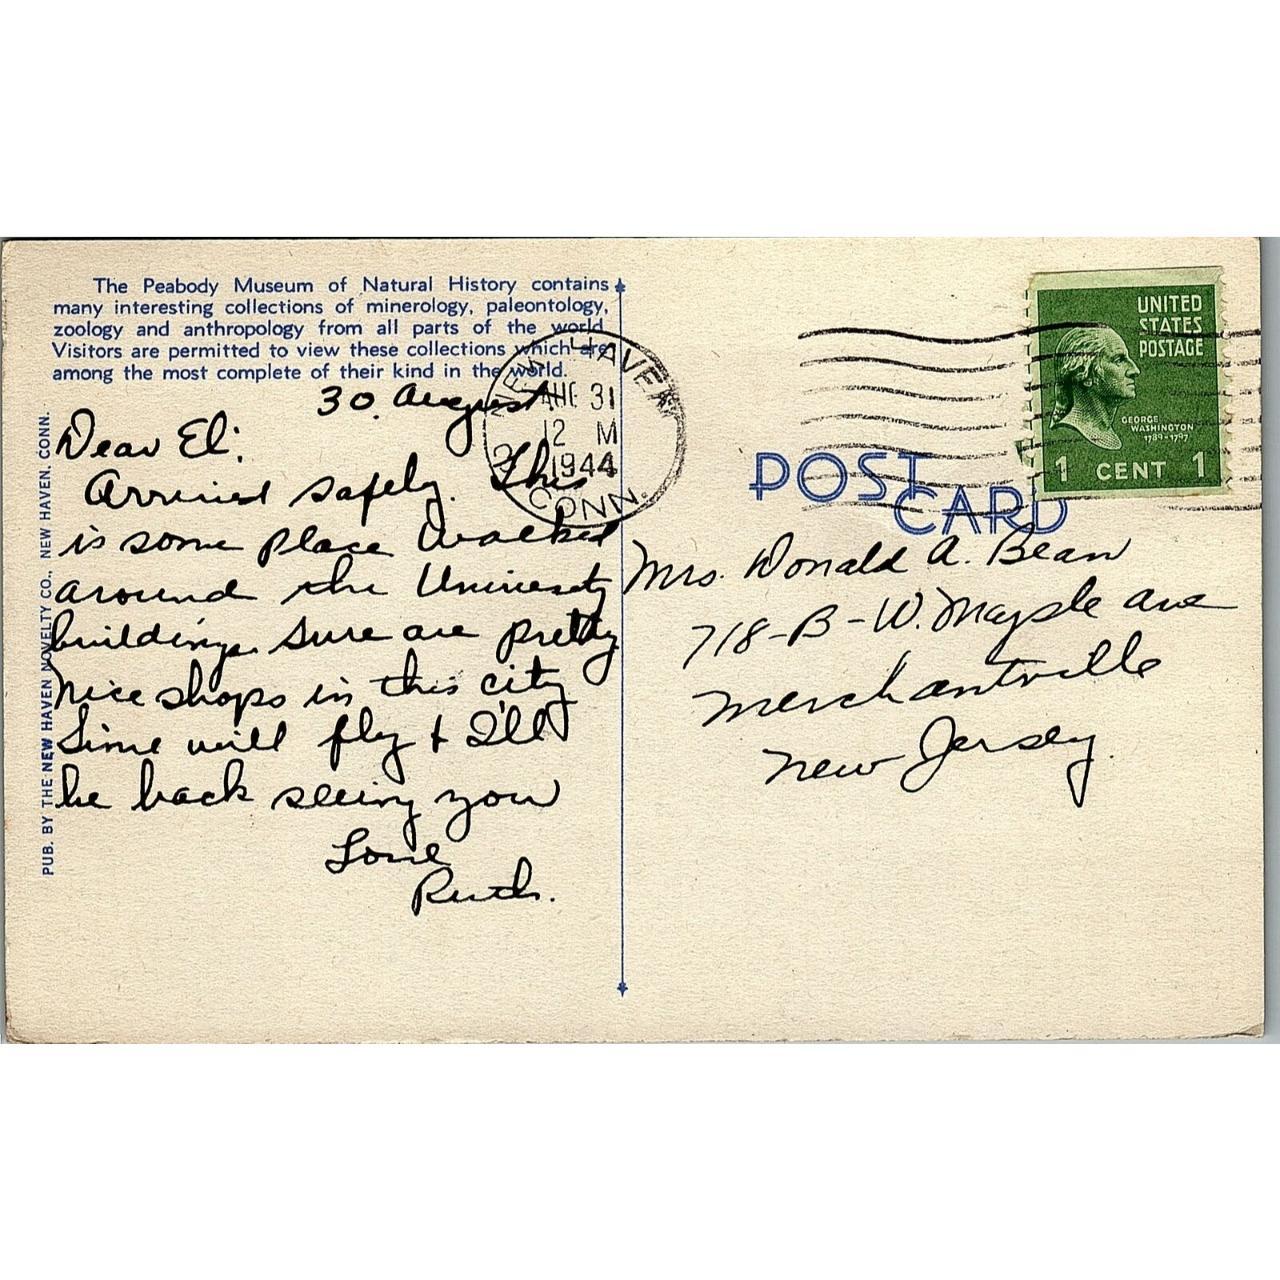 The Peabody Museum of Natural History contains
many interesting collections of minerology, paleontology,
zoology and anthropology from all parts of the world.
Visitors are permitted to view these collections which are
among the most complete of their kind in the world.
30. August.
Dear El:
Arrived safely. This
is some place Walked
around the University
buildings. Sure are pretty
Nice shops in this city
Time will fly & I'll
be back seeing you
Love
Ruth.
PUB. BY THE NEW HAVEN NOVELTY CO., NEW HAVEN, CONN.
NEW HAVEN
AUG 31
12 M
1944
CONN.
UNITED
STATES
POSTAGE
GEORGE
WASHINGTON
1789-1797
1 CENT 1
POST
CARD
Mrs. Donald A. Bean
718-B-W. Maple ave
Merchantville
New Jersey.